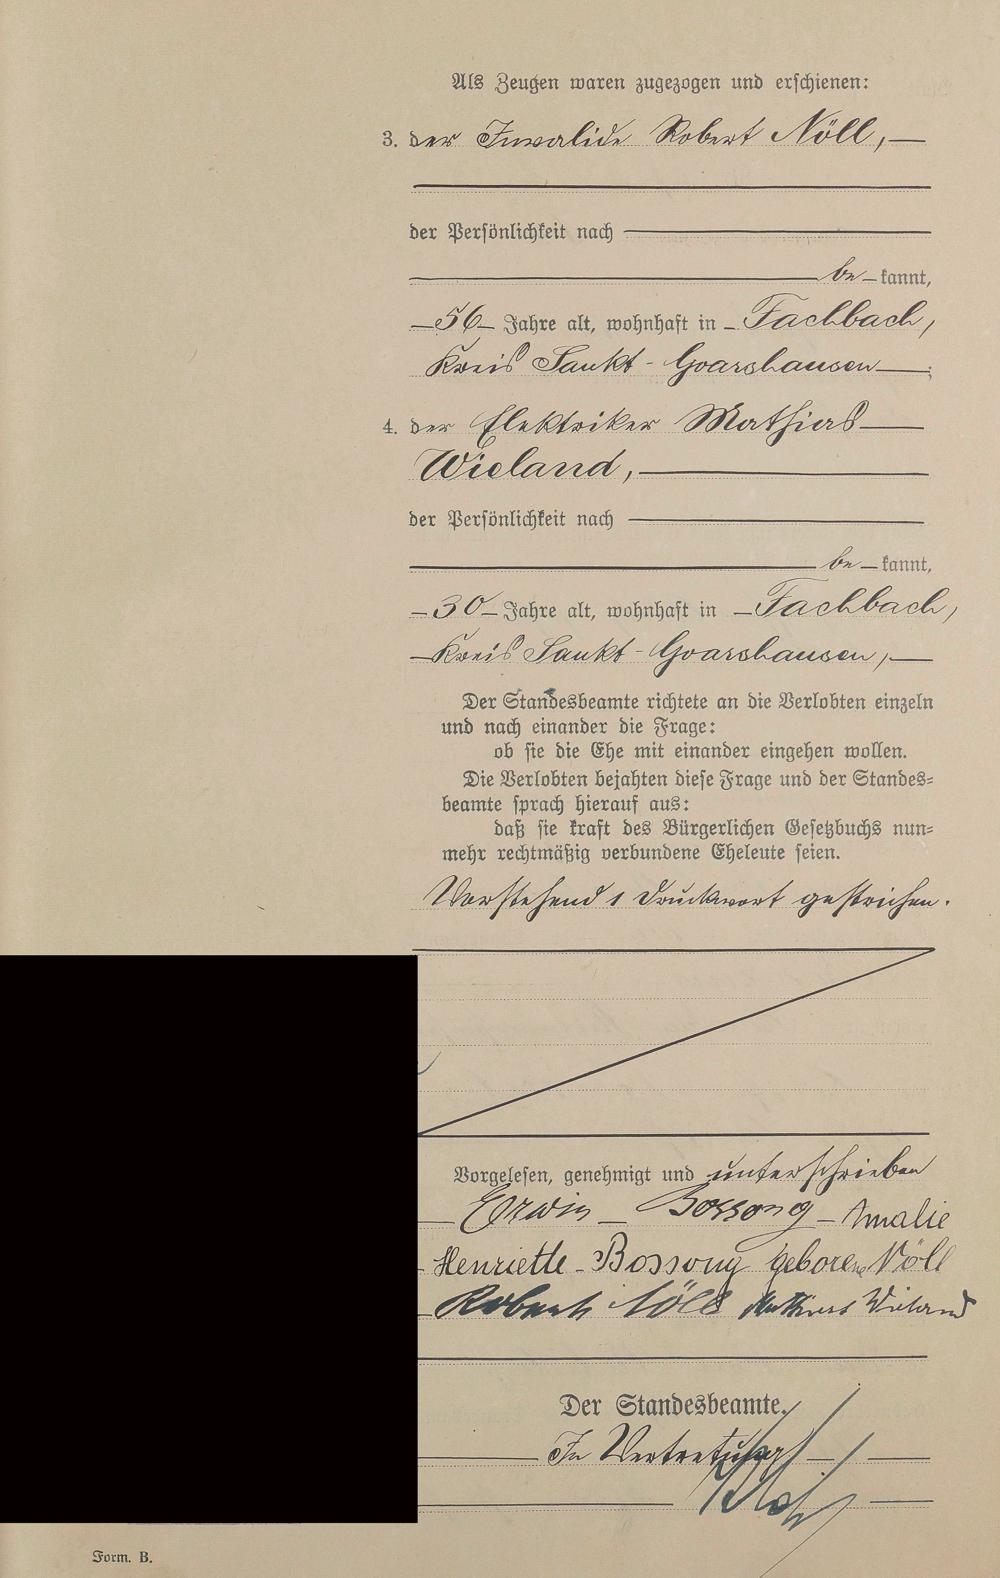 Als Zeugen waren zugezogen und erschienen:
3. der Invalide Robert Nöll,
der Persönlichkeit nach
be kannt,
56 Jahre alt, wohnhaft in Fachbach,
Kreis Sankt-Goarshausen;
4. der Elektriker Mathias
Wieland,
der Persönlichkeit nach
be kannt,
30 Jahre alt, wohnhaft in Fachbach,
Kreis Sankt-Goarshausen,
Der Standesbeamte richtete an die Verlobten einzeln
und nach einander die Frage:
ob sie die Ehe mit einander eingehen wollen.
Die Verlobten bejahten diese Frage und der Standes-
beamte sprach hierauf aus:
daß sie kraft des Bürgerlichen Gesetzbuchs nun-
mehr rechtmäßig verbundene Eheleute seien.
Vorstehend 1 Druckwort gestrichen.
Vorgelesen, genehmigt und unterschrieben
Erwin Bossong - Amalie
Henriette - Bossong geborene Nöll
Robert Nöll Mathias Wieland
Der Standesbeamte.
In Vertretung
Form. B.